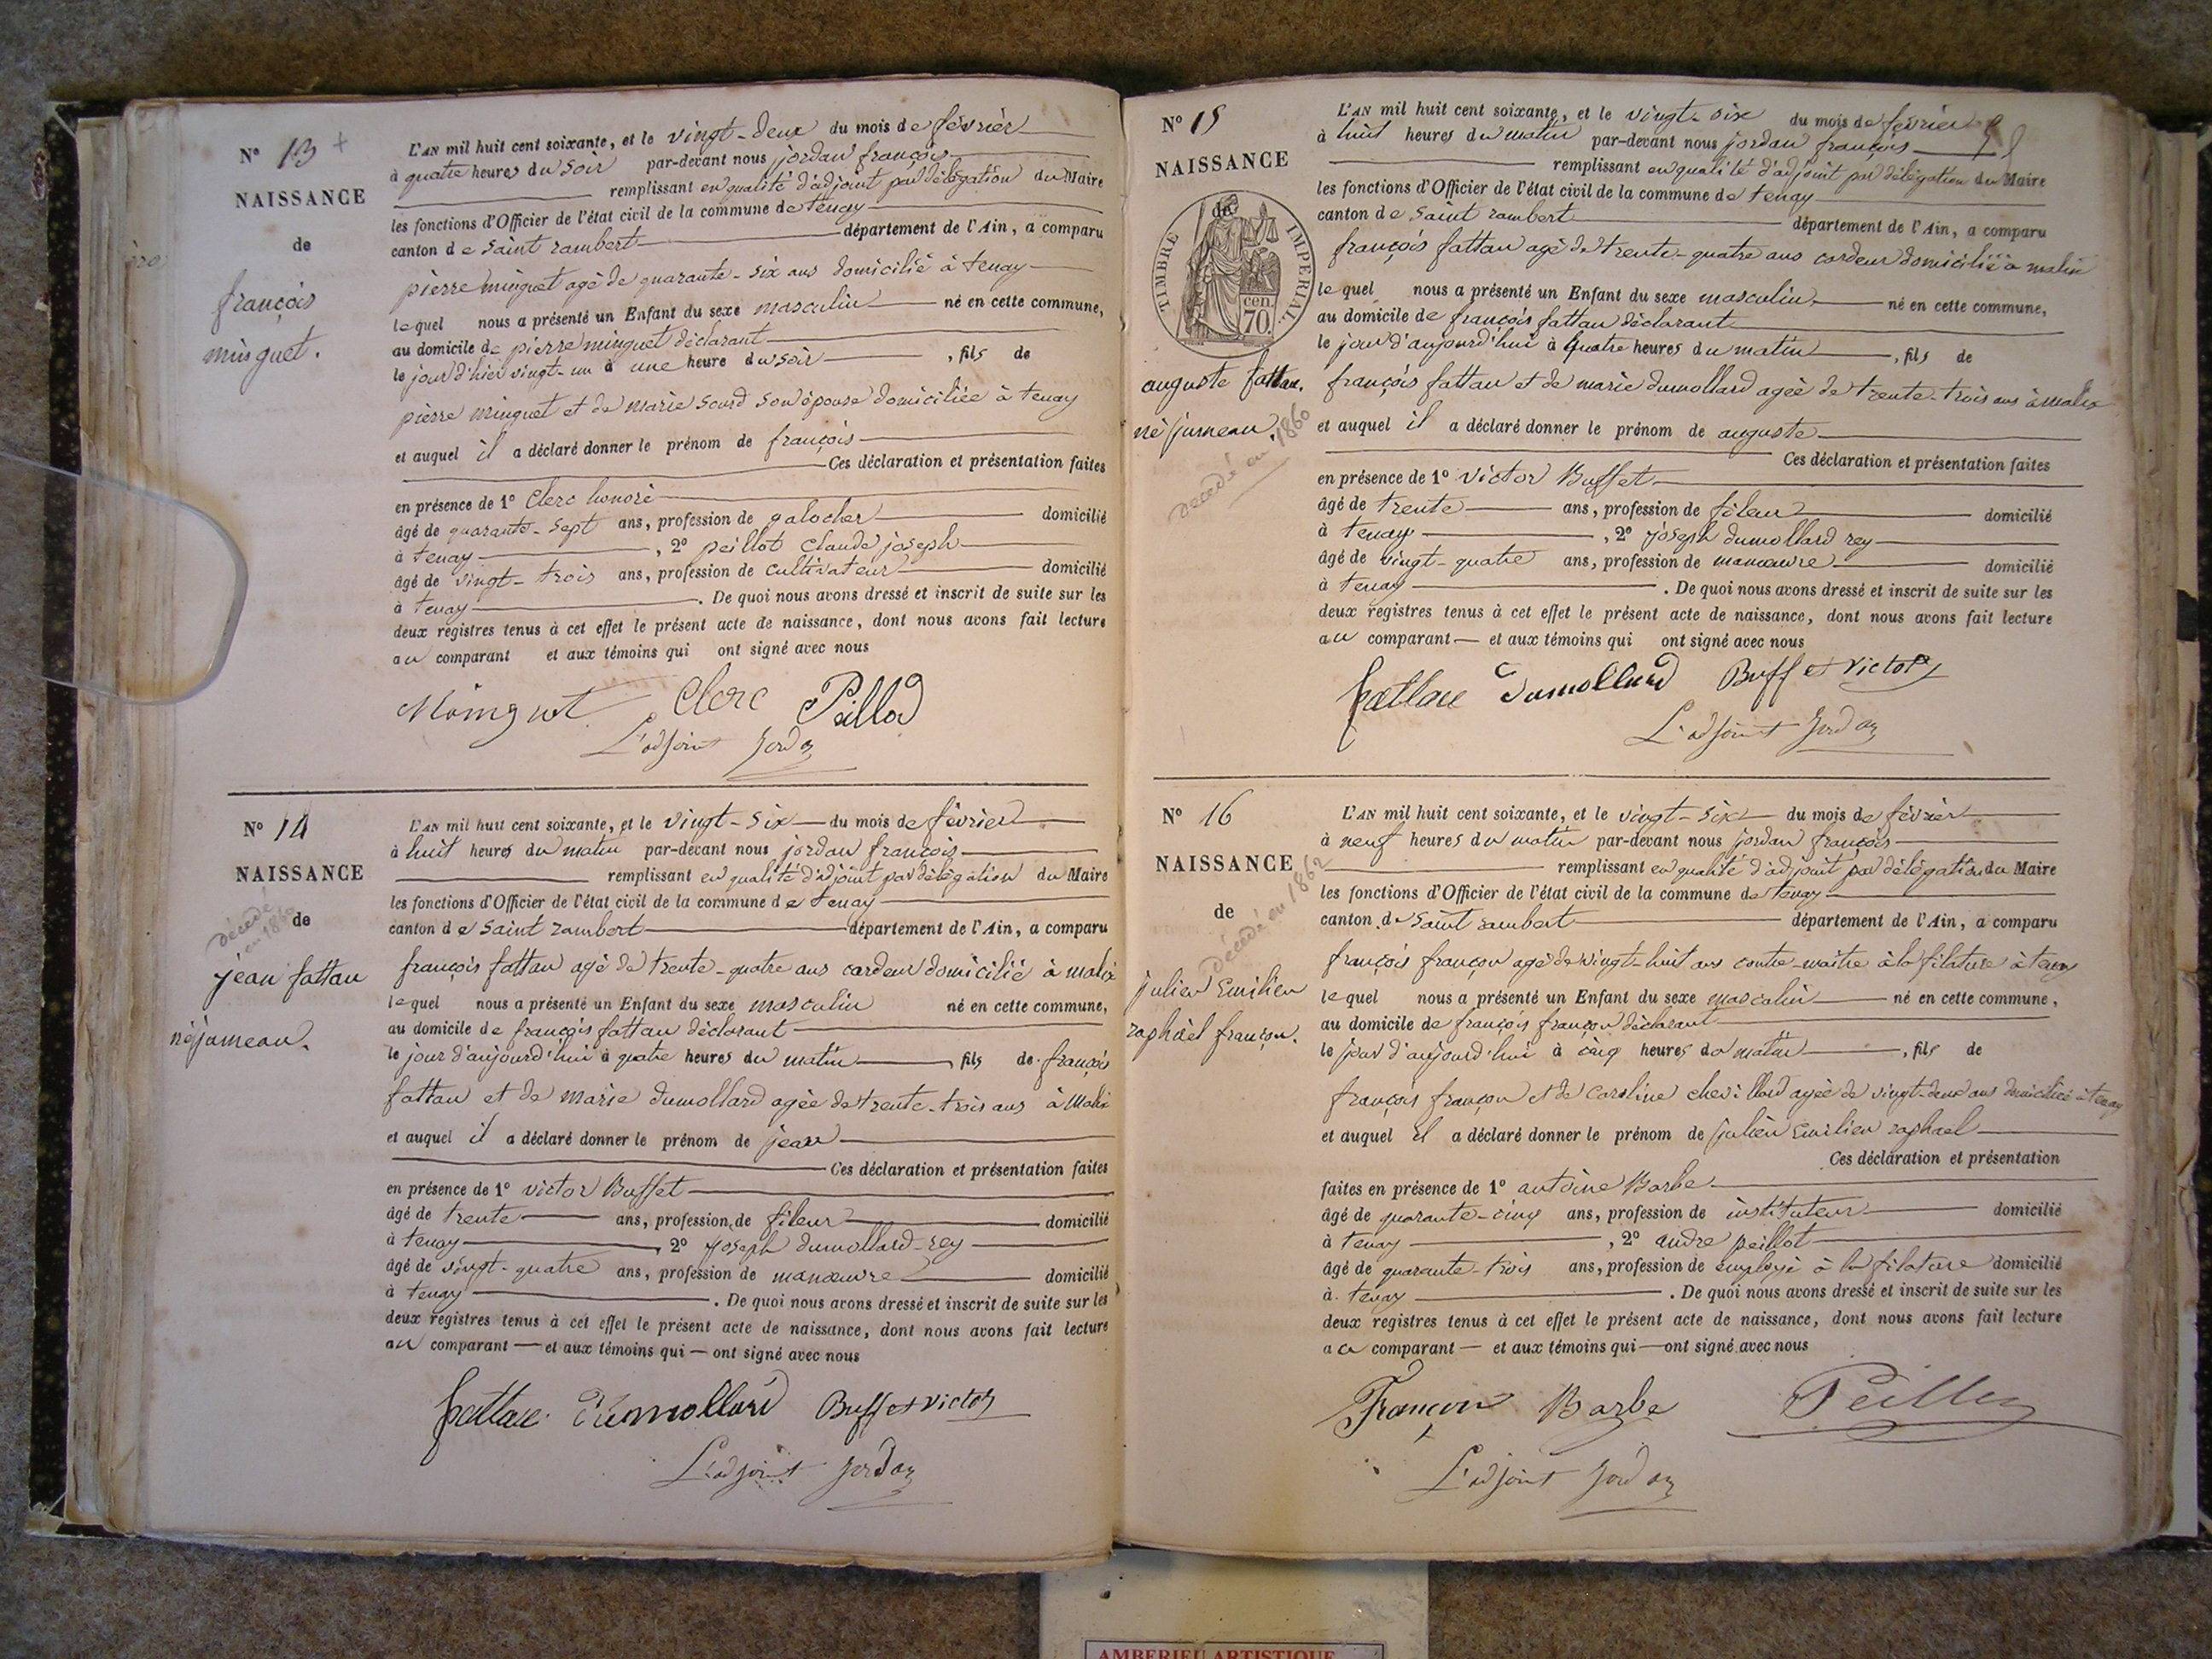 N° 13 +
NAISSANCE
de
françois
minguet.
L'AN mil huit cent soixante, et le vingt-deux du mois de février
à quatre heures du soir par-devant nous jordan françois
remplissant en qualité d'adjoint par délégation du Maire
les fonctions d'Officier de l'état civil de la commune de tenay
canton de saint rambert département de l'Ain, a comparu
pierre minguet agé de quarante-six ans domicilié à tenay
lequel nous a présenté un Enfant du sexe masculin né en cette commune,
au domicile de pierre minguet déclarant
le jour d'hier vingt-un à une heure du soir, fils de
pierre minguet et de marie sourd son épouse domiciliée à tenay
et auquel il a déclaré donner le prénom de françois
Ces déclaration et présentation faites
en présence de 1° Clerc honoré
âgé de quarante-sept ans, profession de galocher domicilié
à tenay, 2° peillot claude joseph
âgé de vingt-trois ans, profession de cultivateur domicilié
à tenay. De quoi nous avons dressé et inscrit de suite sur les
deux registres tenus à cet effet le présent acte de naissance, dont nous avons fait lecture
au comparant et aux témoins qui ont signé avec nous
Moinguet Clerc Peillod
L'adjoint Jordan
N° 14
NAISSANCE
de
décédé
en 1860
jean fattau
né jumeau.
L'AN mil huit cent soixante, et le vingt-six du mois de février
à huit heures du matin par-devant nous jordan françois
remplissant en qualité d'adjoint par délégation du Maire
les fonctions d'Officier de l'état civil de la commune de tenay
canton de saint rambert département de l'Ain, a comparu
françois fattau agé de trente-quatre ans cardeur domicilié à malix
lequel nous a présenté un Enfant du sexe masculin né en cette commune,
au domicile de françois fattau déclarant
le jour d'aujourd'hui à quatre heures du matin, fils de françois
fattau et de marie dumollard agée de trente-trois ans à Malix
et auquel il a déclaré donner le prénom de jean
Ces déclaration et présentation faites
en présence de 1° victor Buffet
âgé de trente ans, profession de fileur domicilié
à tenay, 2° joseph dumollard-rey
âgé de vingt-quatre ans, profession de manœuvre domicilié
à tenay. De quoi nous avons dressé et inscrit de suite sur les
deux registres tenus à cet effet le présent acte de naissance, dont nous avons fait lecture
au comparant et aux témoins qui ont signé avec nous
fattau Dumollard Buffet victor
L'adjoint Jordan
N° 15
NAISSANCE
de
TIMBRE IMPERIAL
70 cen.
auguste fattau.
né jumeau.
décédé en 1860
L'AN mil huit cent soixante, et le vingt-six du mois de février
à huit heures du matin par-devant nous jordan françois
remplissant en qualité d'adjoint par délégation du Maire
les fonctions d'Officier de l'état civil de la commune de tenay
canton de saint rambert département de l'Ain, a comparu
françois fattau agé de trente-quatre ans cardeur domicilié à malix
lequel nous a présenté un Enfant du sexe masculin né en cette commune,
au domicile de françois fattau déclarant
le jour d'aujourd'hui à quatre heures du matin, fils de
françois fattau et de marie dumollard agée de trente-trois ans à malix
et auquel il a déclaré donner le prénom de auguste
Ces déclaration et présentation faites
en présence de 1° victor Buffet
âgé de trente ans, profession de fileur domicilié
à tenay, 2° joseph dumollard rey
âgé de vingt-quatre ans, profession de manœuvre domicilié
à tenay. De quoi nous avons dressé et inscrit de suite sur les
deux registres tenus à cet effet le présent acte de naissance, dont nous avons fait lecture
au comparant et aux témoins qui ont signé avec nous
fattau Dumollard Buffet victor
L'adjoint Jordan
N° 16
NAISSANCE
de
décédé en 1862
julien Emilien
raphaël françon.
L'AN mil huit cent soixante, et le vingt-six du mois de février
à neuf heures du matin par-devant nous jordan françois
remplissant en qualité d'adjoint par délégation du Maire
les fonctions d'Officier de l'état civil de la commune de tenay
canton de saint rambert département de l'Ain, a comparu
françois françon agé de vingt-huit ans contre-maître à la filature à tenay
lequel nous a présenté un Enfant du sexe masculin né en cette commune,
au domicile de françois françon déclarant
le jour d'aujourd'hui à cinq heures du matin, fils de
françois françon et de caroline chevillard agée de vingt-deux ans domiciliée à tenay
et auquel il a déclaré donner le prénom de julien Emilien raphael
Ces déclaration et présentation
faites en présence de 1° antoine Barbe
âgé de quarante-cinq ans, profession de instituteur domicilié
à tenay, 2° andre peillot
âgé de quarante-trois ans, profession de employé à la filature domicilié
à tenay. De quoi nous avons dressé et inscrit de suite sur les
deux registres tenus à cet effet le présent acte de naissance, dont nous avons fait lecture
au comparant et aux témoins qui ont signé avec nous
Françon Barbe
L'adjoint Jordan
AMBERIEU ARTISTIQUE